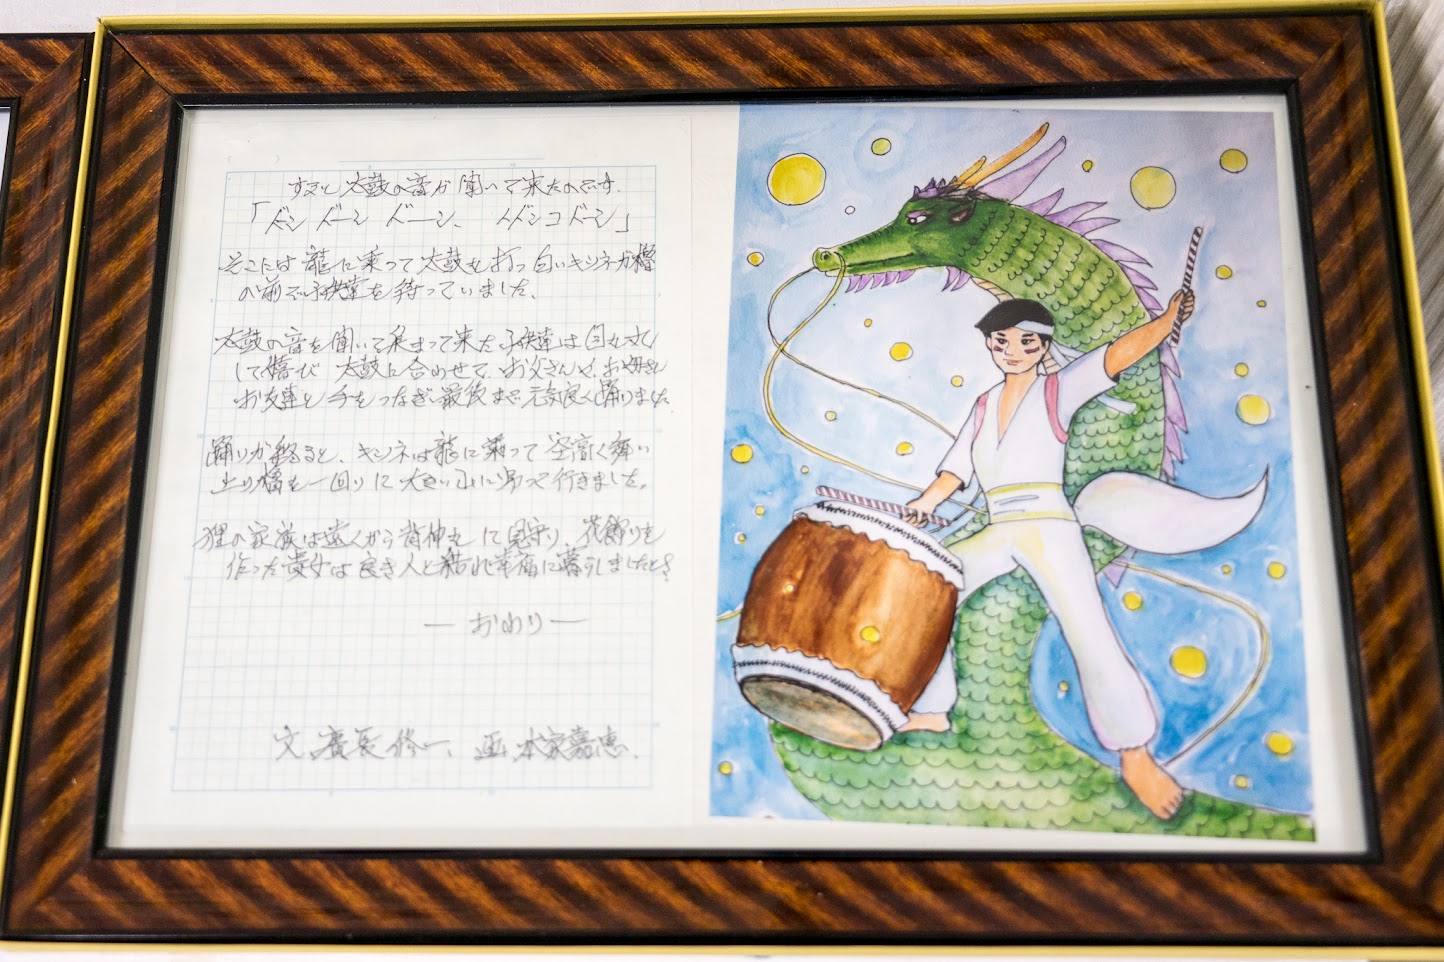 すると 太鼓の音が 聞いて来たのです.
「ドン ドーン ドーン、 ドンコドーン」
そこには 龍に乗って 太鼓を打つ 白いキツネが櫓
の前で子供達を 待っていました.
太鼓の音を 聞いて 集まって来た 子供達は
して喜び 太鼓に合わせて、お父さんや、お母さん
お友達と 手をつなぎ最後まで 元気良く踊りました
踊りが終ると、キツネは龍に乗って 空高く舞い
上り櫓を一回りに 大きい山に帰って行きました。
狸の家族は遠くから 見守り、花飾りを
作った 貴女は 良き人と結れ幸福に暮らしましたとさ
― おわり ―
文 廣長修一、 画 本家嘉恵.